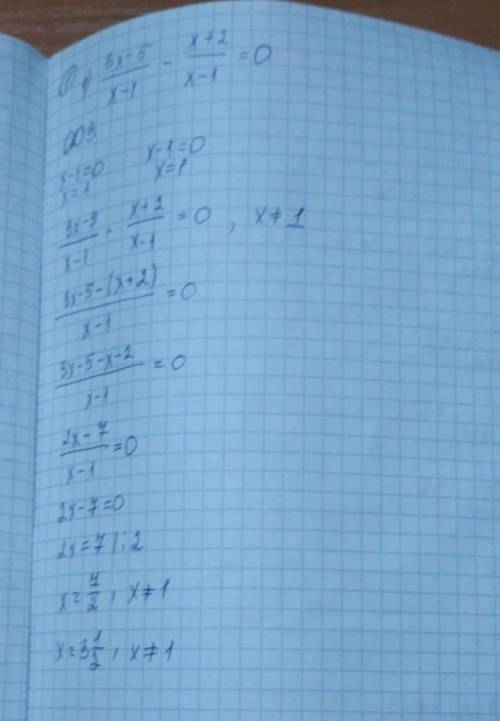 1) (3x-5)/(x-1) - (x+2)/(x-1) = 0
ОДЗ
x-1=0 x-1=0
x=1 x=1
(3x-3)/(x-1) - (x+2)/(x-1) = 0, x≠1
(3x-5-(x+2))/(x-1) = 0
(3x-5-x-2)/(x-1) = 0
(2x-7)/(x-1) = 0
2x-7=0
2x=7 |:2
x=7/2, x≠1
x=3 1/2, x≠1